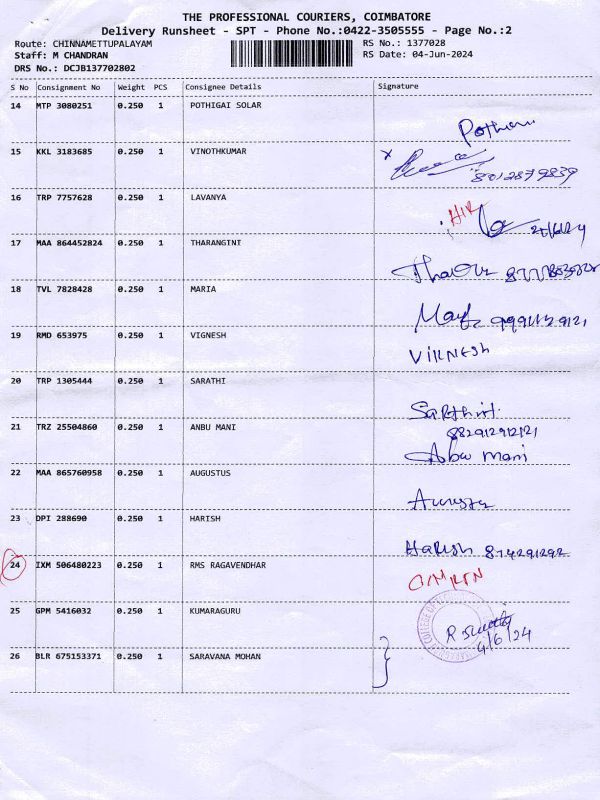 THE PROFESSIONAL COURIERS, COIMBATORE
Delivery Runsheet - SPT - Phone No.:0422-3505555 - Page No.:2
Route: CHINNAMETTUPALAYAM RS No.: 1377028
Staff: M CHANDRAN RS Date: 04-Jun-2024
DRS No.: DCJB137702802
S No Consignment No Weight PCS Consignee Details Signature
14 MTP 3080251 0.250 1 POTHIGAI SOLAR
15 KKL 3183685 0.250 1 VINOTHKUMAR
8012879839
16 TRP 7757628 0.250 1 LAVANYA
17 MAA 864452824 0.250 1 THARANGINI
18 TVL 7828428 0.250 1 MARIA
19 RMD 653975 0.250 1 VIGNESH
VIKNESH
20 TRP 1305444 0.250 1 SARATHI
21 TRZ 25504860 0.250 1 ANBU MANI
882912912121
Abu mani
22 MAA 865760958 0.250 1 AUGUSTUS
23 DPI 288690 0.250 1 HARISH
Harish 874291292
24 IXM 506480223 0.250 1 RMS RAGAVENDHAR
25 GPM 5416032 0.250 1 KUMARAGURU
4/6/24
26 BLR 675153371 0.250 1 SARAVANA MOHAN